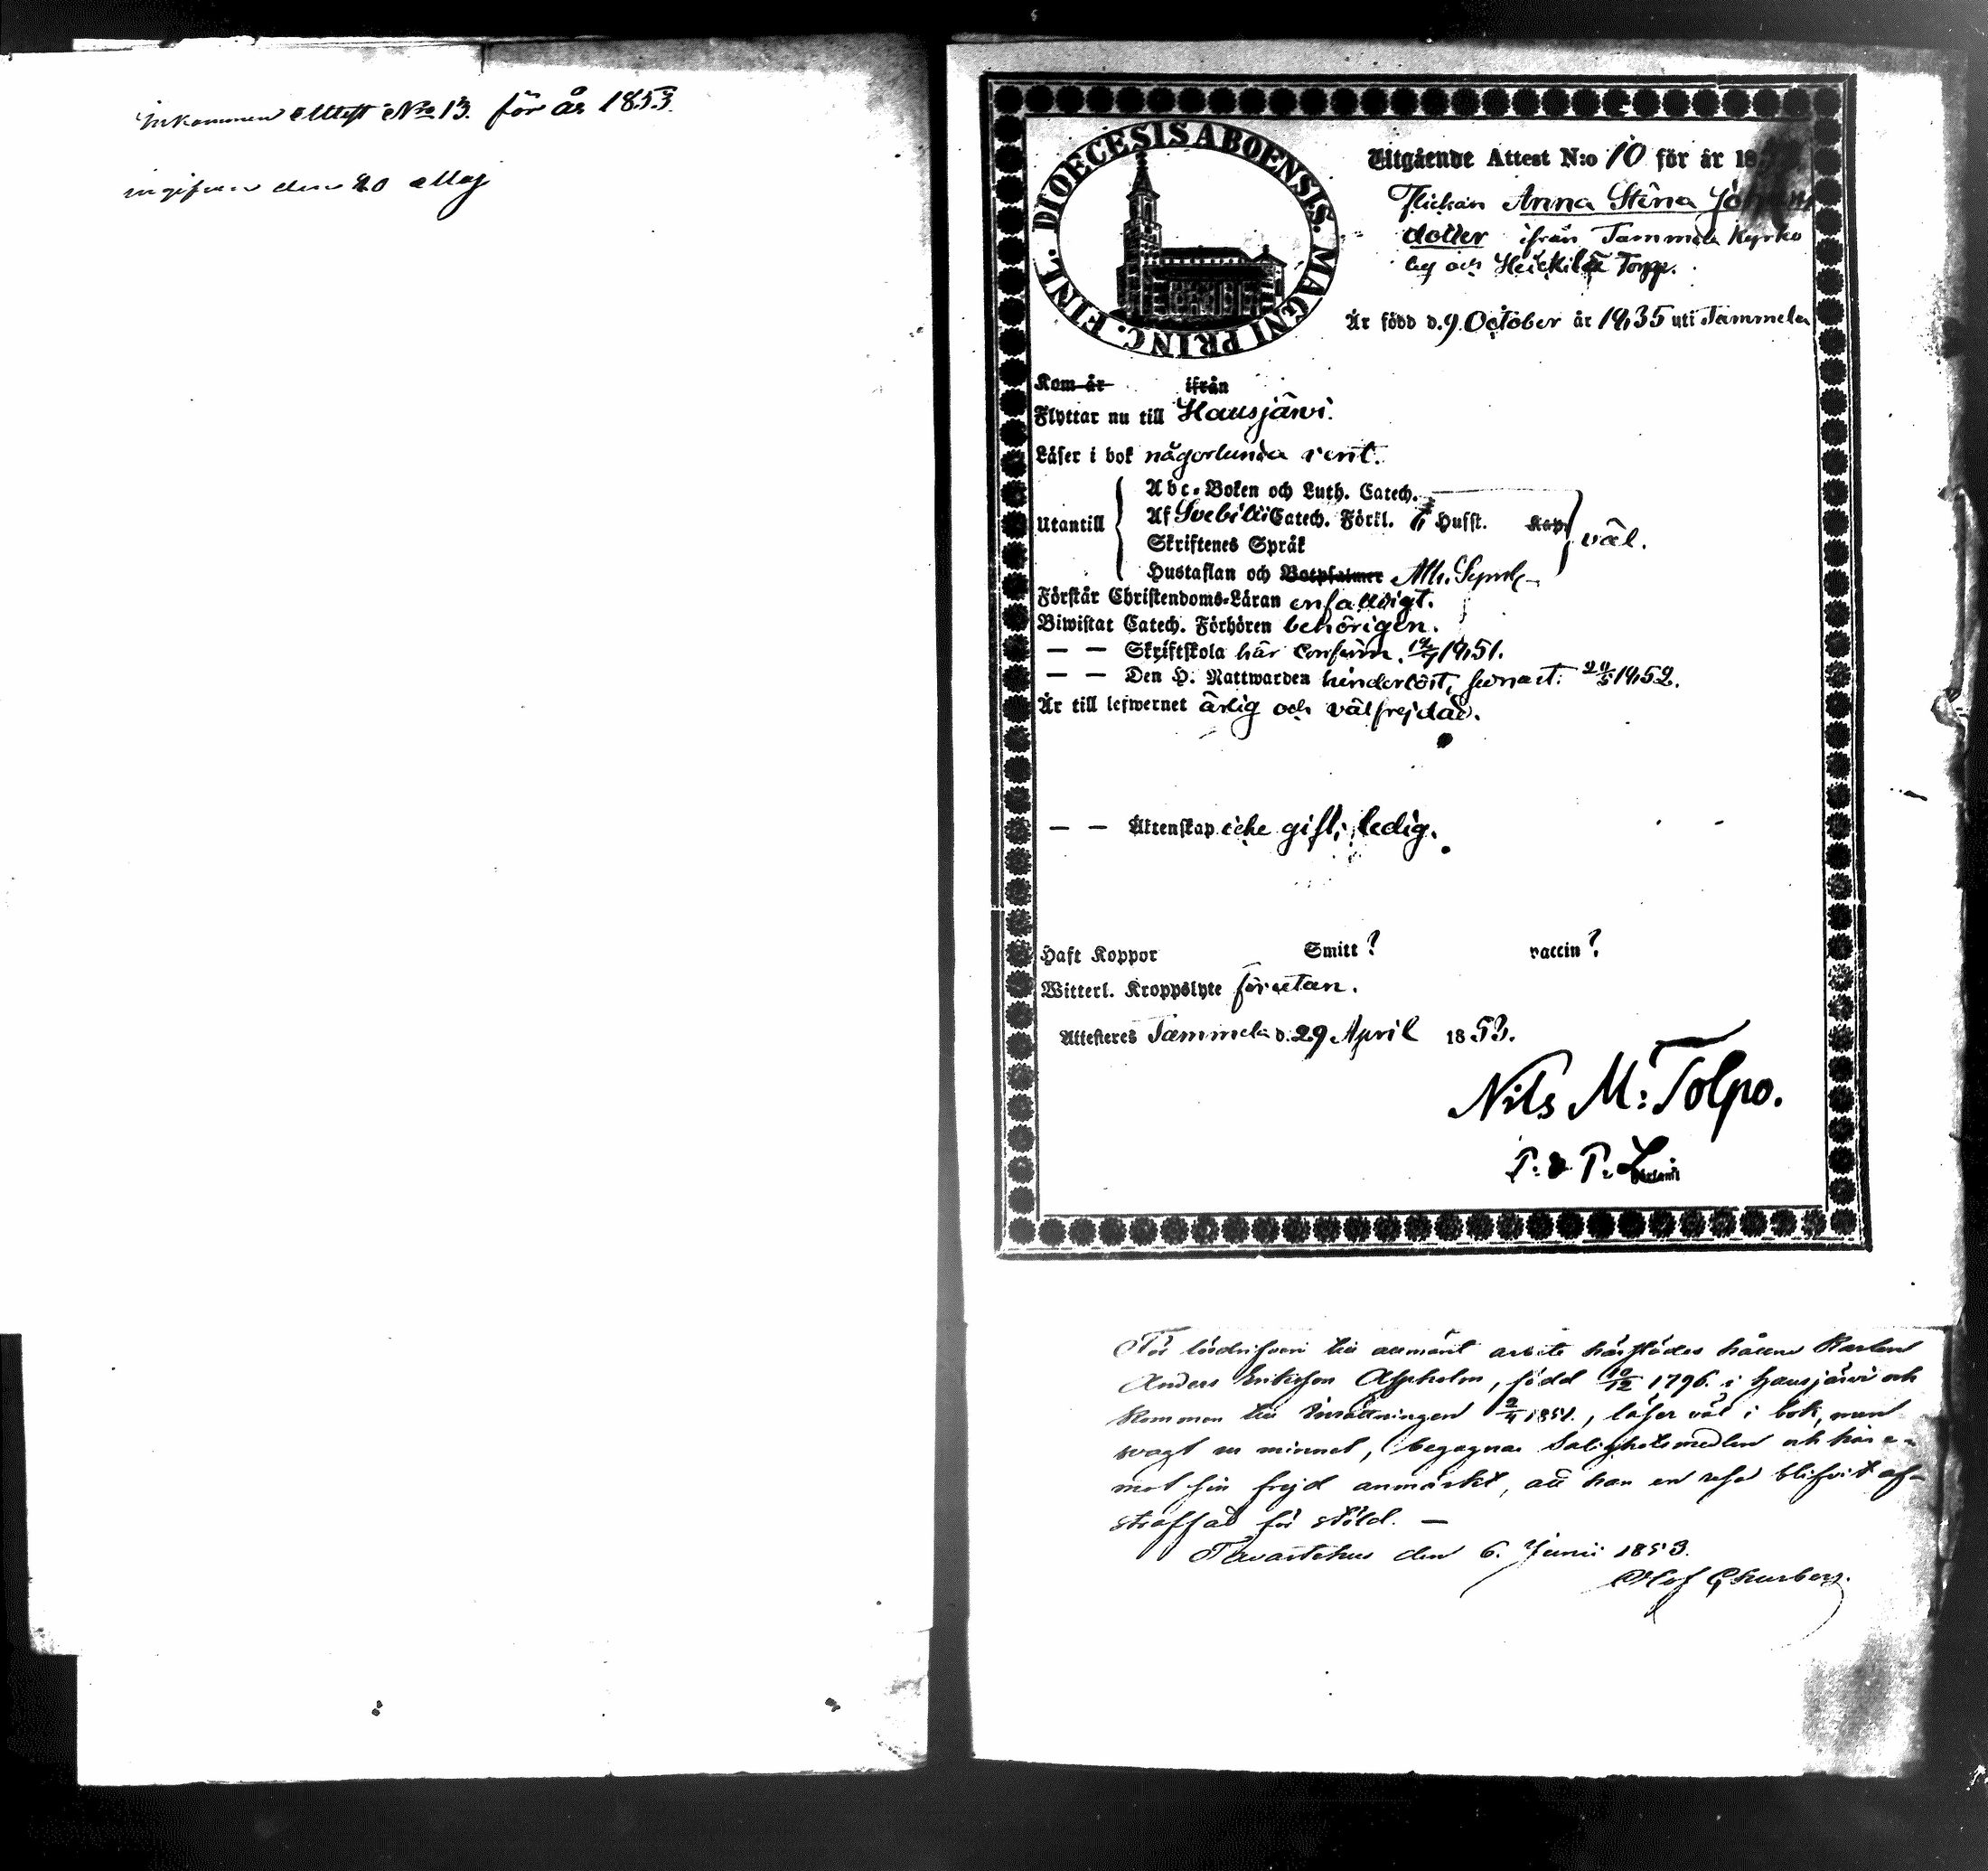 Inkommen Attest No 13. för år 1853.
ingifven den 20 Maj
DIOECESIS ABOENSIS. MAGNI PRINC. FINL.
Utgående Attest N:o 10 för år 18
Flickan Anna Stina Johans
dotter ifrån Tammela Kyrko
by och Heickilä Torpp.
Är född d. 9. October år 1835 uti Tammela
Kom år ifrån
Flyttar nu till Hausjärvi.
Läser i bok någorlunda rent.
Abc-Boken och Luth. Catech.
Utantill Af Svebilii Catech. Förkl. Husst. Kap. väl.
Skriftenes Språk
Hustaflan och Botpsalmer Ath. Symb.
Förstår Christendoms-Läran enfaldigt.
Biwistat Catech. Förhören behörigen.
— — Skriftskola här Confirm. 1851.
— — Den H. Nattwarden hinderlöst, senast. 1852.
Är till lefwernet ärlig och välfrejdad.
— — Äktenskap icke gift; ledig.
Haft Koppor Smitt? vaccin?
Witterl. Kroppslyte förutan.
Attesteres Tammela d. 29 April 1853.
Nils M: Tolpo.
P. & P. L
För lösdrifveri till allmänt arbete härstädes hållne Karlen
Anders Eriksson Aspholm, född 10/12 1796. i Hausjärvi och
kommen till Inrättningen 2/4 1851., läser väl i bok, men
svagt ur minnet, begagnar Salighetsmedlen och har e-
mot sin frejd anmärkt, att han en resa blifvit af-
straffad för stöld. —
Tavastehus den 6. Junii 1853.
Olof